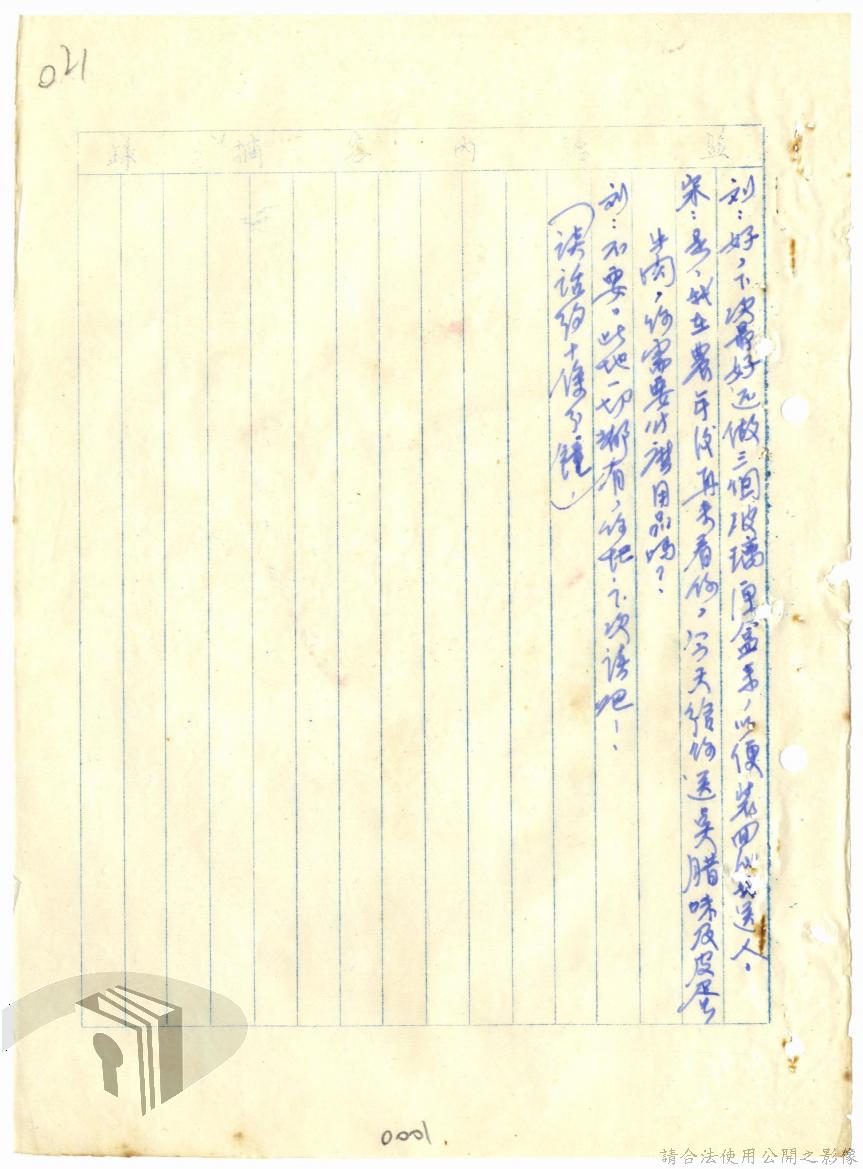 021
監 聽 內 容 摘 錄
刘：好，下次最好还做三個玻璃匣盒来，以便裝回代我送人。
宋：是，我在農年後再来看你，今天給你送些腊味及皮蛋
牛肉，你需要什麽用品嗎？
刘：不要。此地一切都有，你把下次談吧！
（談話約十馀分鐘）
0001
請合法使用公開之影像